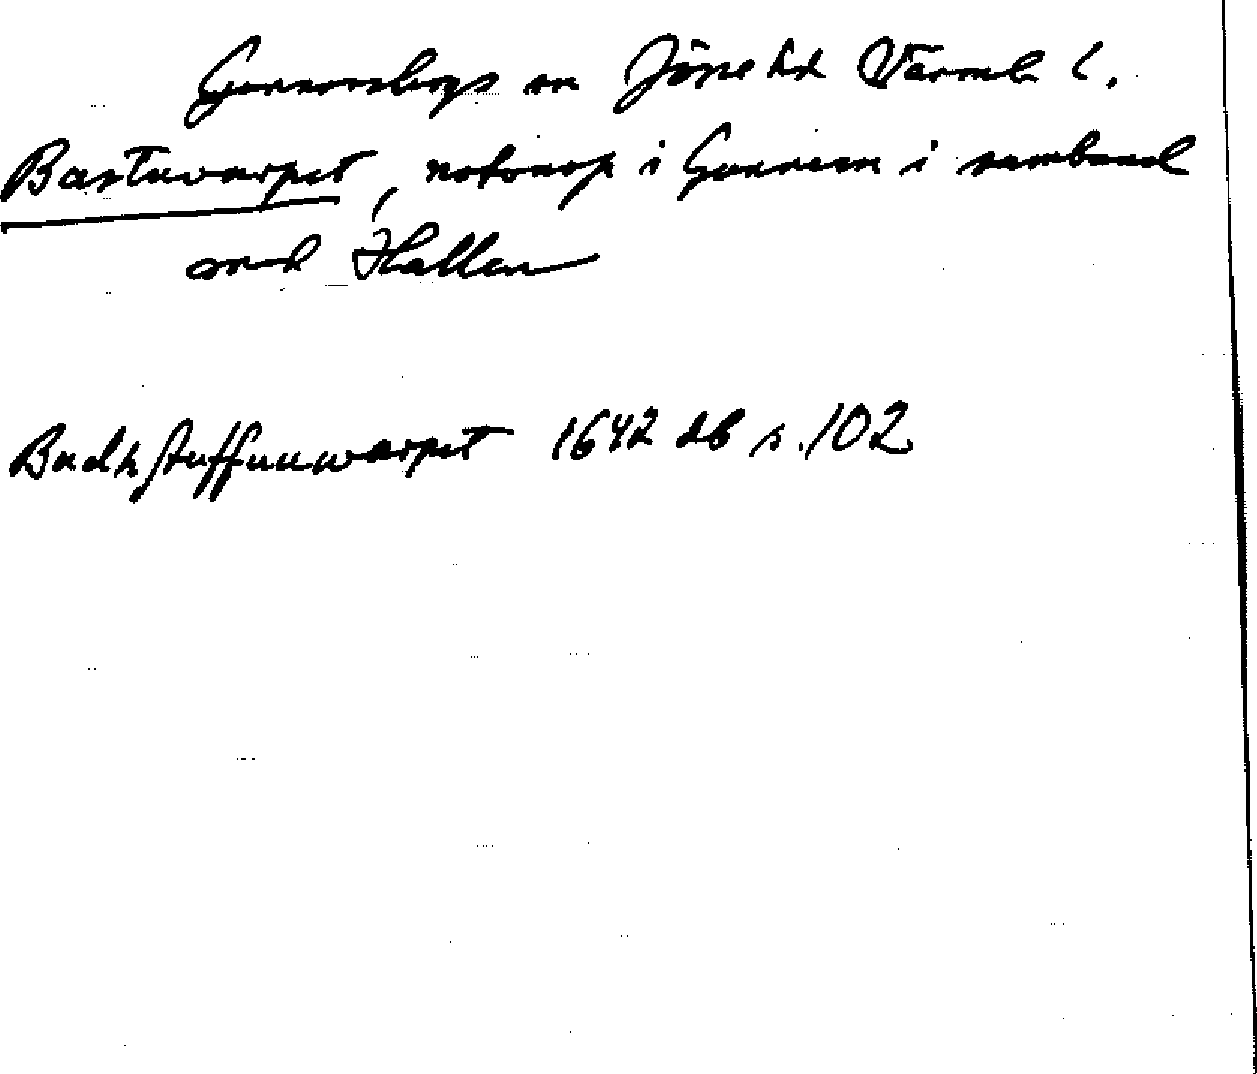 Gunnarskogs sn Jösse hd Värml l.
Bastuvarpet, notvarp i Gunnern i samband
med Hallen
Badhstuffuuwarpet 1642 db s. 102